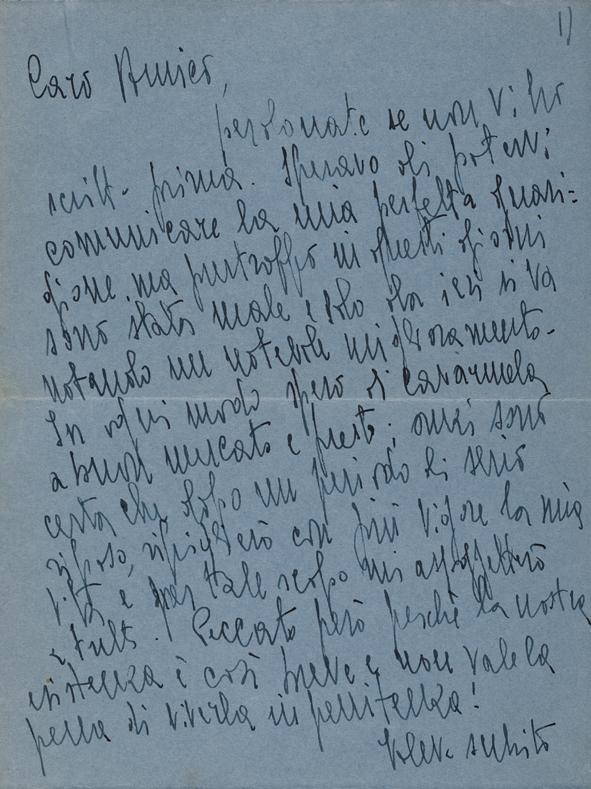 1)
Caro Amico,
perdonate se non vi ho
scritto prima. Speravo di potervi
comunicare la mia perfetta guari=
gione, ma purtroppo in questi giorni
sono stata male e solo da ieri si va
notando un notevole miglioramento.
In ogni modo spero di cavarmela
a buon mercato e presto; anzi sono
certa che dopo un periodo di serio
riposo, ripiglierò con più vigore la mia
vita e per tale scopo mi assoggetterò
a tutto. Peccato però perchè la nostra
esistenza è così breve e non vale la
pena di viverla in penitenza!
Volevo subito